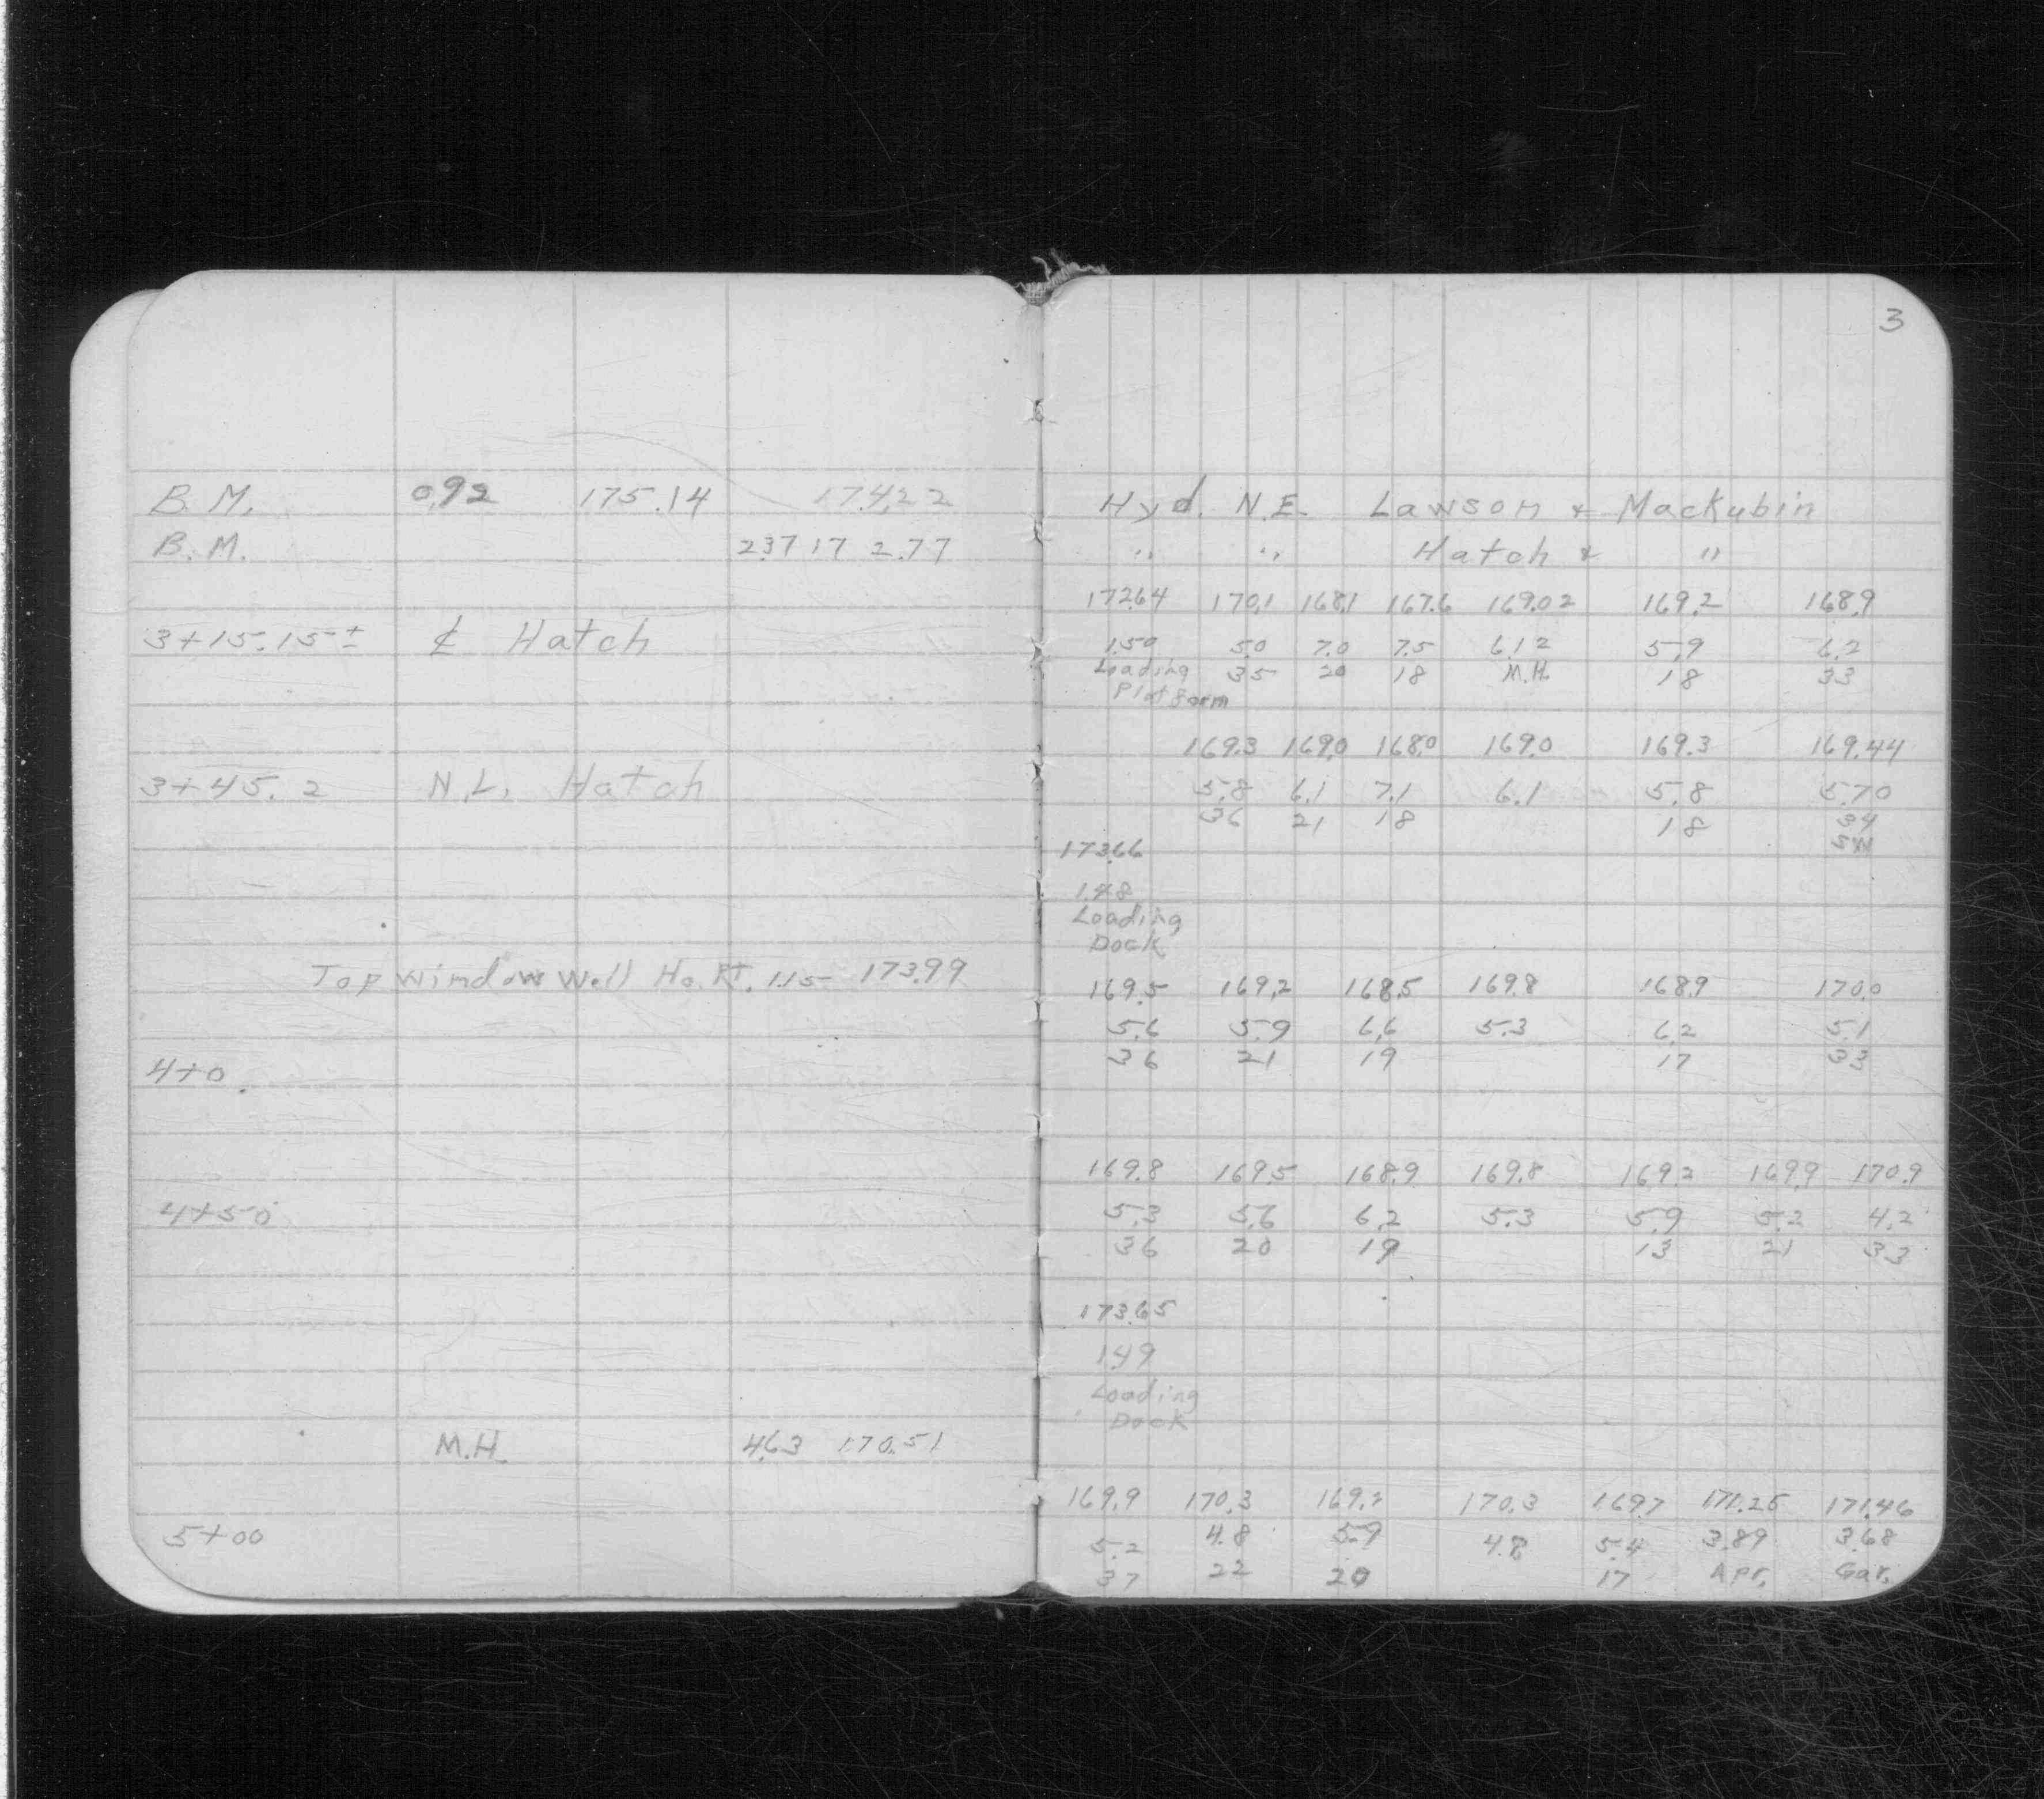 B.M. 0.92 175.14 174.22
B.M. 2.37 172.77
3+15.15± ₵ Hatch
3+45.2 N.L. Hatch
Top Window Well Ho. Rt. 1.15 173.99
4+0
4+50
M.H. 4.63 170.51
5+00
3
Hyd. N.E. Lawson & Mackubin
" " Hatch & "
172.64 170.1 168.1 167.6 169.02 169.2 168.9
1.50 5.0 7.0 7.5 6.12 5.9 6.2
Loading 35 20 18 M.H. 18 33
Platform
169.3 169.0 168.0 169.0 169.3 169.44
5.8 6.1 7.1 6.1 5.8 5.70
36 21 18 18 34
SW
173.66
1.48
Loading
Dock
169.5 169.2 168.5 169.8 168.9 170.0
5.6 5.9 6.6 5.3 6.2 5.1
36 21 19 17 33
169.8 169.5 168.9 169.8 169.2 169.9 170.9
5.3 5.6 6.2 5.3 5.9 5.2 4.2
36 20 19 13 21 33
173.65
1.49
Loading
Dock
169.9 170.3 169.2 170.3 169.7 171.25 171.46
5.2 4.8 5.9 4.8 5.4 3.89 3.68
37 22 20 17 Apr. Gar.